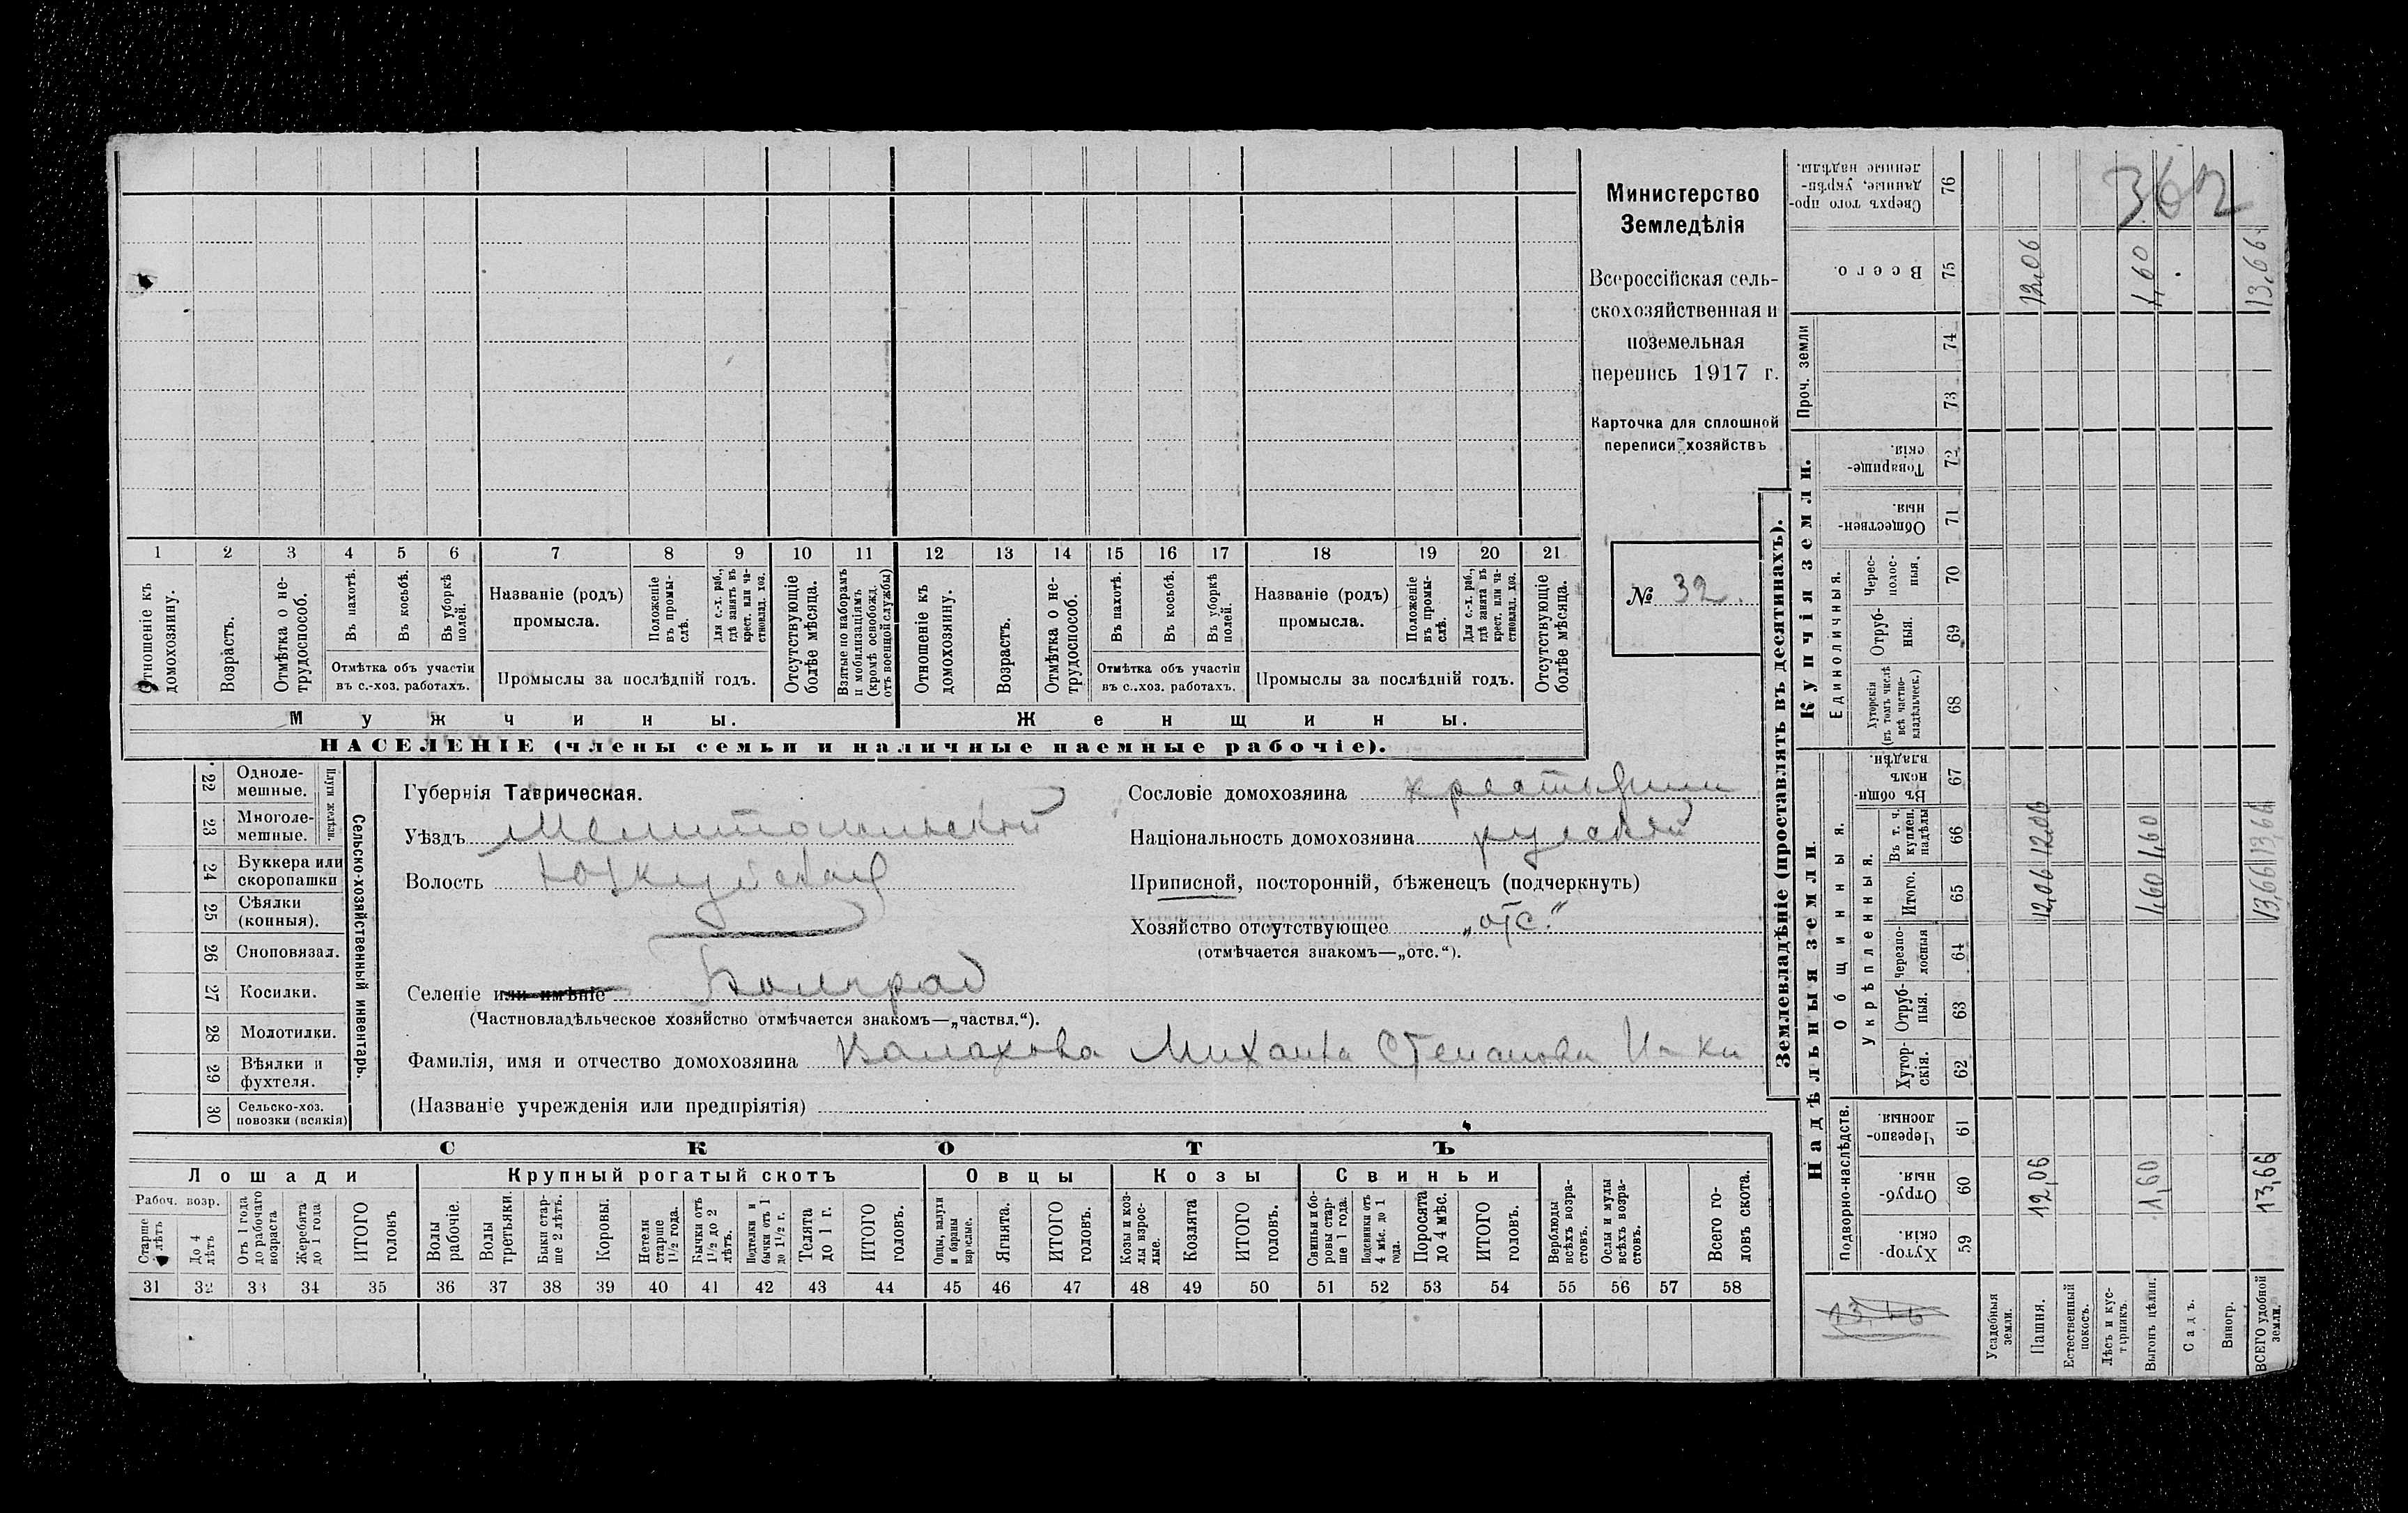 Министерство
Земледѣлія
Всероссійская сель-
скохозяйственная и
поземельная
перепись 1917 г.
Карточка для сплошной
переписи хозяйствъ
№ 32.
1 2 3 4 5 6 7 8 9 10 11 12 13 14 15 16 17 18 19 20 21
Отношеніе къ домохозяину.
Возрастъ.
Отмѣтка о не-трудоспособ.
Въ пахотѣ.
Въ косьбѣ.
Въ уборкѣ полей.
Отмѣтка объ участіи
въ с.-хоз. работахъ.
Названіе (родъ)
промысла.
Положеніе въ промы-слѣ.
Для с.-х. раб., гдѣ занятъ въ крест. или ча-стновлад. хоз.
Промыслы за послѣдній годъ.
Отсутствующіе болѣе мѣсяца.
Взятые по наборамъ и мобилизаціямъ (кромѣ освобожд. отъ военной службы)
Отношеніе къ домохозяину.
Возрастъ.
Отмѣтка о не-трудоспособ.
Въ пахотѣ.
Въ косьбѣ.
Въ уборкѣ полей.
Отмѣтка объ участіи
въ с.-хоз. работахъ.
Названіе (родъ)
промысла.
Положеніе въ промы-слѣ.
Для с.-х. раб., гдѣ занята въ крест. или ча-стновлад. хоз.
Промыслы за послѣдній годъ.
Отсутствующіе болѣе мѣсяца.
Мужчины.
Женщины.
НАСЕЛЕНІЕ (члены семьи и наличные наемные рабочіе).
Сельско-хозяйственный инвентарь.
Плуги желѣзн.
22 Одноле-мешные.
23 Многоле-мешные.
24 Буккера или скоропашки
25 Сѣялки (конныя).
26 Сноповязал.
27 Косилки.
28 Молотилки.
29 Вѣялки и фухтеля.
30 Сельско-хоз. повозки (всякія)
Губернія Таврическая.
Уѣздъ Мелитопольскій
Волость
Селеніе или имѣніе Болград
(Частновладѣльческое хозяйство отмѣчается знакомъ—„частвл.“).
Фамилія, имя и отчество домохозяина Михаила Степанова
(Названіе учрежденія или предпріятія)
Сословіе домохозяина
Національность домохозяина русскій
Приписной, посторонній, бѣженецъ (подчеркнуть)
Хозяйство отсутствующее „отс.“
(отмѣчается знакомъ—„отс.“).
СКОТЪ
Лошади
Рабоч. возр.
Старше 4 лѣтъ
До 4 лѣтъ
Отъ 1 года до рабочаго возраста
Жеребята до 1 года
ИТОГО головъ
Крупный рогатый скотъ
Волы рабочіе.
Волы третьяки.
Быки стар-ше 2 лѣтъ.
Коровы.
Нетели старше 1½ года.
Бычки отъ 1½ до 2 лѣтъ.
Подтелки и бычки отъ 1 до 1½ г.
Телята до 1 г.
ИТОГО головъ.
Овцы
Овцы, валухи и бараны взрослые.
Ягнята.
ИТОГО головъ.
Козы
Козы и коз-лы взрос-лые.
Козлята
ИТОГО головъ.
Свиньи
Свиньи и бо-ровы стар-ше 1 года.
Подсвинки отъ 4 мѣс. до 1 года.
Поросята до 4 мѣс.
ИТОГО головъ.
Верблюды всѣхъ возра-стовъ.
Ослы и мулы всѣхъ возра-стовъ.
Всего го-ловъ скота.
31 32 33 34 35 36 37 38 39 40 41 42 43 44 45 46 47 48 49 50 51 52 53 54 55 56 57 58
Землевладѣніе (проставлять въ десятинахъ).
Надѣльныя земли
Подворно-наслѣдств.
59 Хутор-скія.
60 Отруб-ныя.
61 Черезпо-лосныя
Общинныя.
Укрѣпленныя.
62 Хутор-скія.
63 Отруб-ныя.
64 Черезпо-лосныя
65 Итого.
66 Въ т. ч. куплен. надѣлы
67 Въ общи-номъ владѣн.
Купчія земли.
Единоличныя.
68 Хуторскія (въ томъ числѣ всѣ частно-владѣльческ.)
69 Отруб-ныя.
70 Черес-полос-ныя.
71 Обществен-ныя.
72 Товарище-скія.
Проч. земли
73 74
75 Всего.
76 Сверхъ того про-данные, укрѣп-ленные надѣлы.
Усадебныя земли.
Пашня. 12,06 12,06 12,06 12,06
Естественный покосъ.
Лѣсъ и кус-тарникъ.
Выгонъ цѣлин. 1,60 1,60 1,60 1,60
Садъ.
Виногр.
ВСЕГО удобной земли. 13,66 13,66 13,66 13,66
362